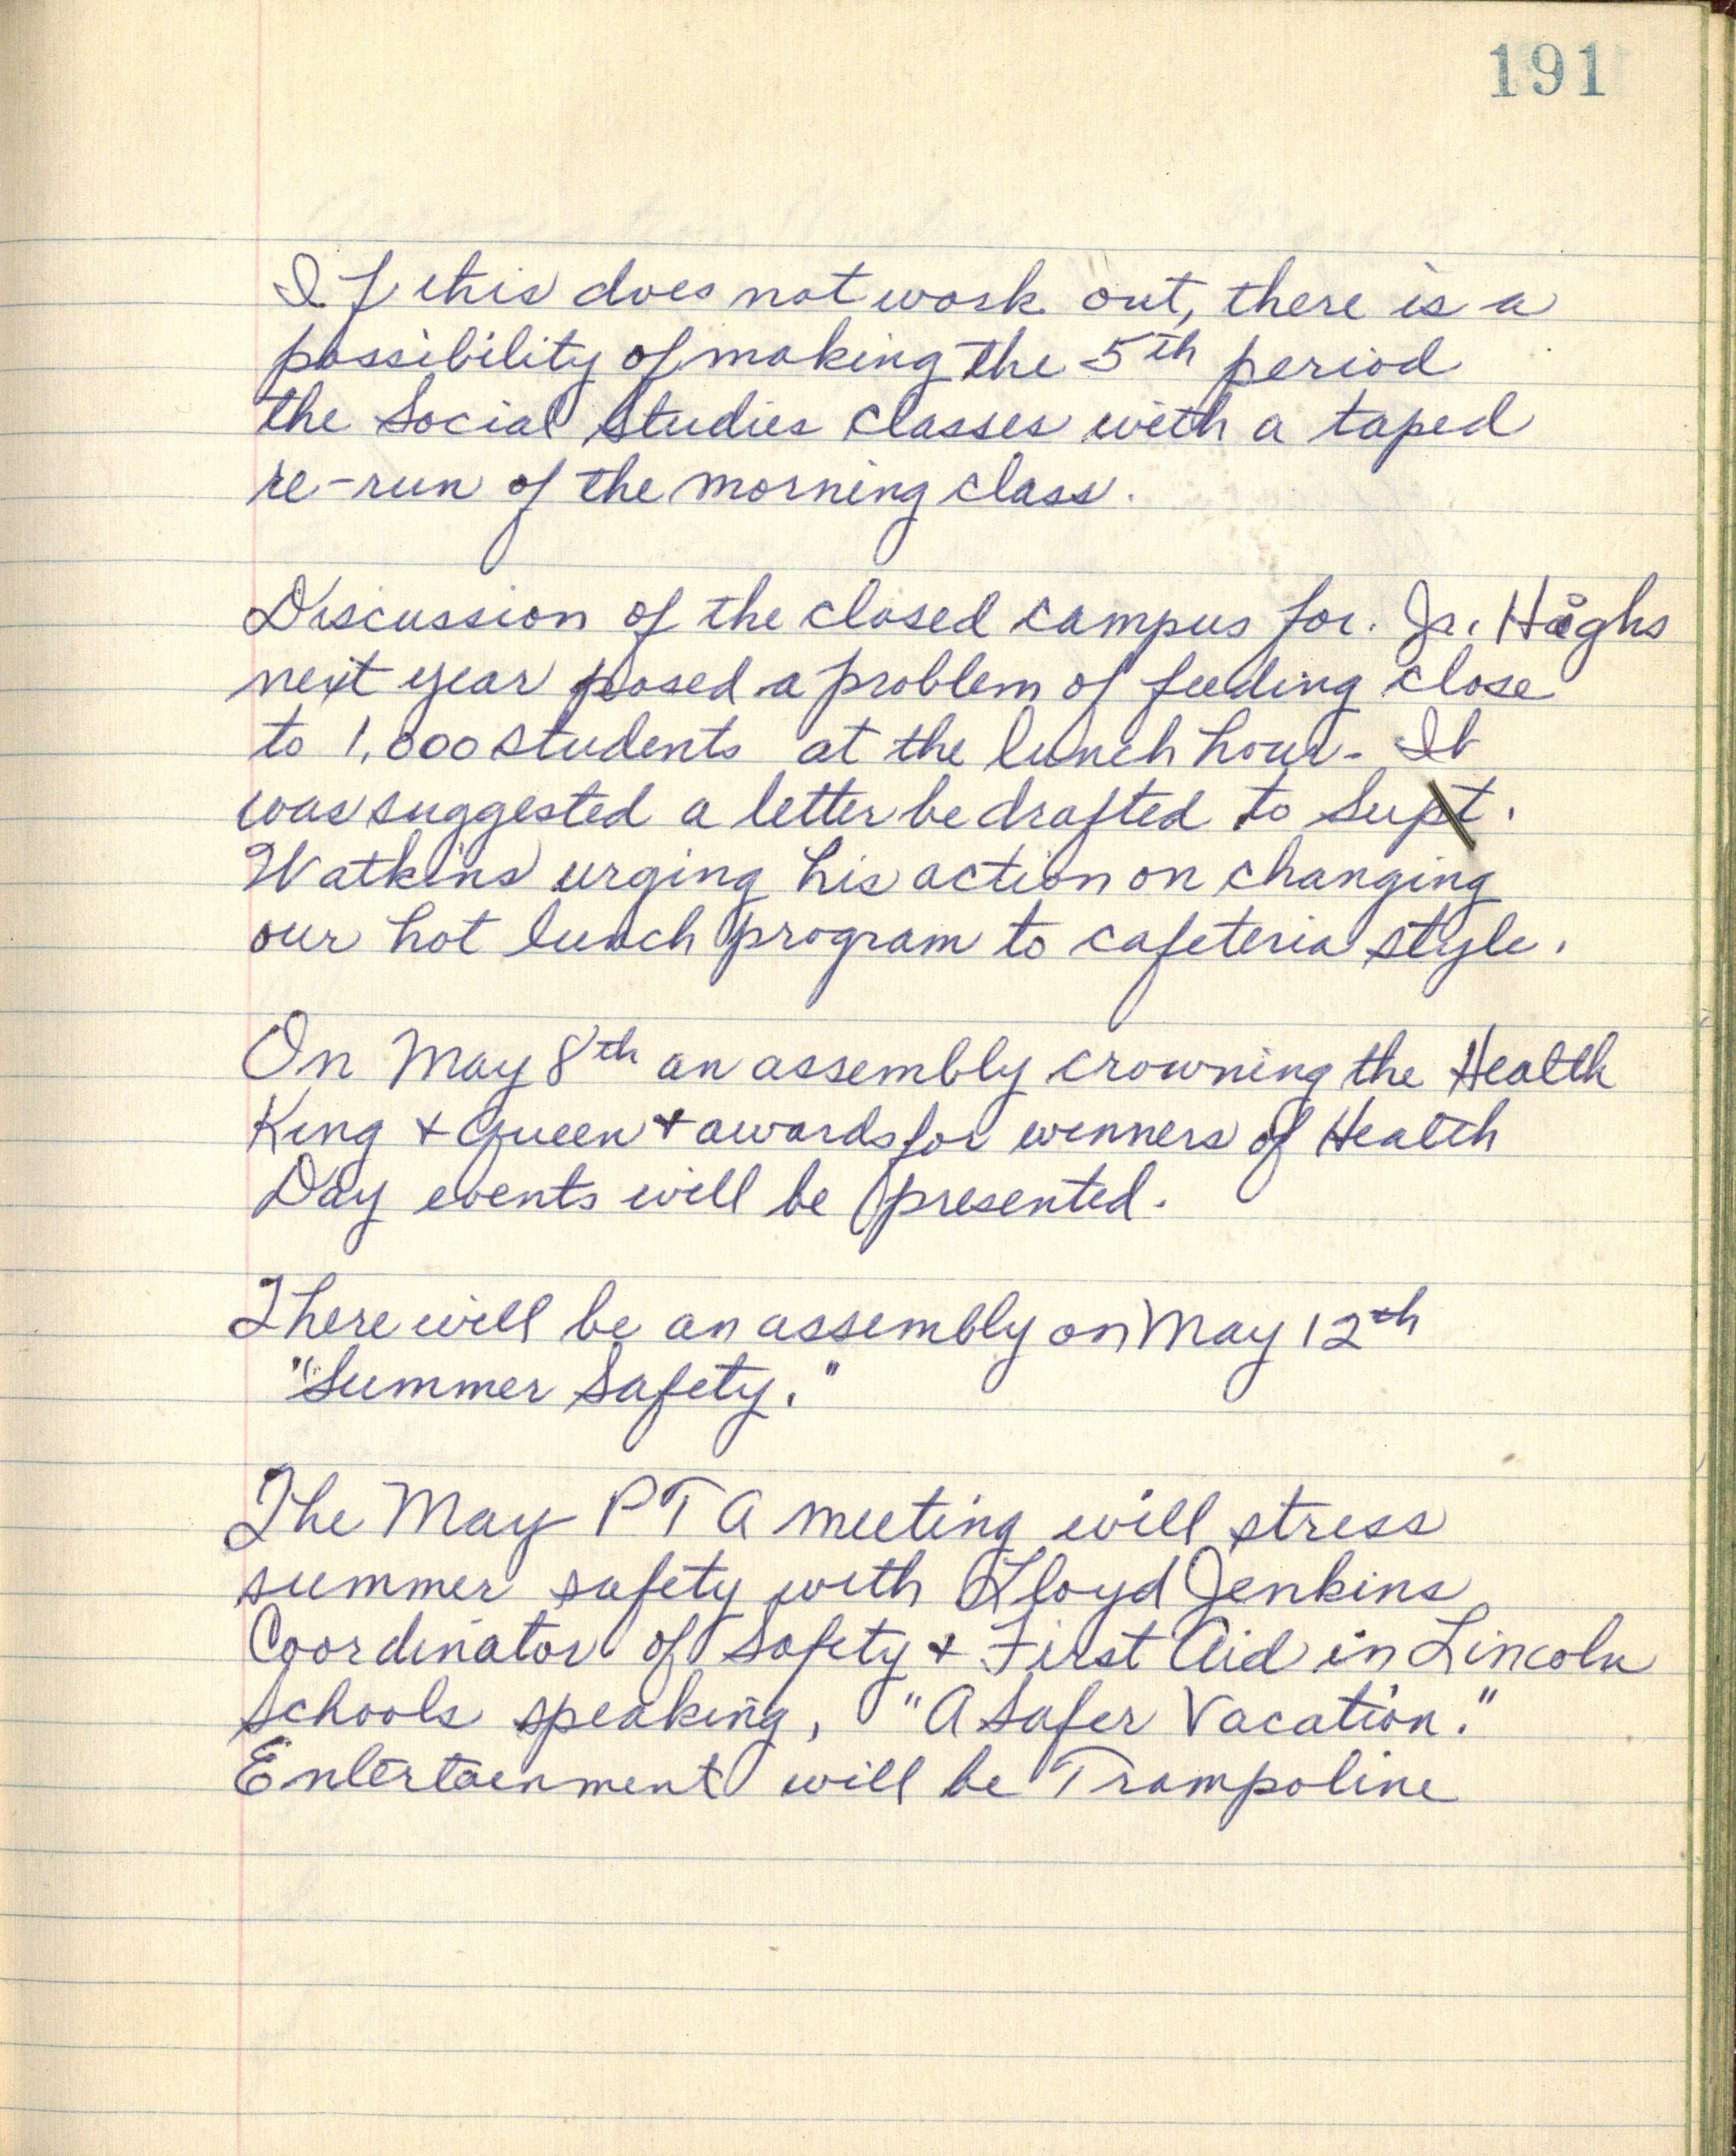 191
If this does not work out, there is a
possibility of making the 5th period
the Social Studies classes with a taped
re-run of the morning class.
Discussion of the closed campus for Jr. Highs
next year posed a problem of feeding close
to 1,000 students at the lunch hour. It
was suggested a letter be drafted to Supt.
Watkins urging his action on changing
our hot lunch program to cafeteria style.
On May 8th an assembly crowning the Health
King + Queen + awards for winners of Health
Day events will be presented.
There will be an assembly on May 12th
"Summer Safety."
The May PTA meeting will stress
summer safety with Lloyd Jenkins
Coordinator of Safety + First Aid in Lincoln
schools speaking, "A Safer Vacation."
Entertainment will be Trampoline